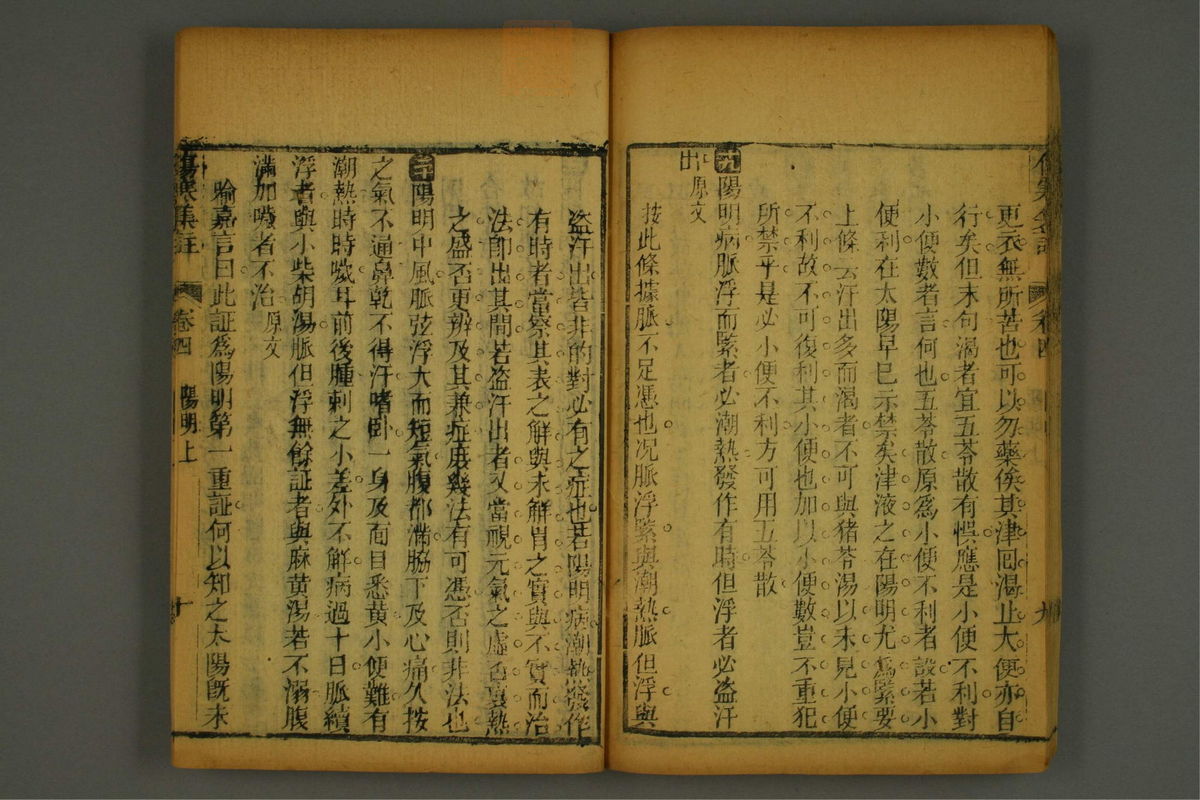 傷寒集註 卷四 九
更衣無所苦也可以勿藥俟其津回渴止大便亦自
行矣但末句渴者宜五苓散有悞應是小便不利對
小便數者言何也五苓散原爲小便不利者設若小
便利在太陽早已示禁矣津液之在陽明尤爲緊要
上條云汗出多而渴者不可與猪苓湯以未見小便
不利故不可復利其小便也加以小便數豈不重犯
所禁乎是必小便不利方可用五苓散
十九陽明病脈浮而緊者必潮熱發作有時但浮者必盜汗
出原文
按此條據脈不足憑也况脈浮緊與潮熱脈但浮與
盜汗出皆非的對必有之症也若陽明病潮熱發作
有時者當察其表之解與未解胃之實與不實而治
法卽出其間若盜汗出者又當視元氣之虛否裏熱
之盛否更辨及其兼症庶幾法有可憑否則非法也
二十陽明中風脈弦浮大而短氣腹都滿脇下及心痛久按
之氣不通鼻乾不得汗嗜卧一身及面目悉黃小便難有
潮熱時時噦耳前後腫刺之小差外不解病過十日脈續
浮者與小柴胡湯脈但浮無餘証者與麻黃湯若不溺腹
滿加噦者不治原文
喻嘉言曰此証爲陽明第一重証何以知之太陽旣未
傷寒集註 卷四 陽明上 十